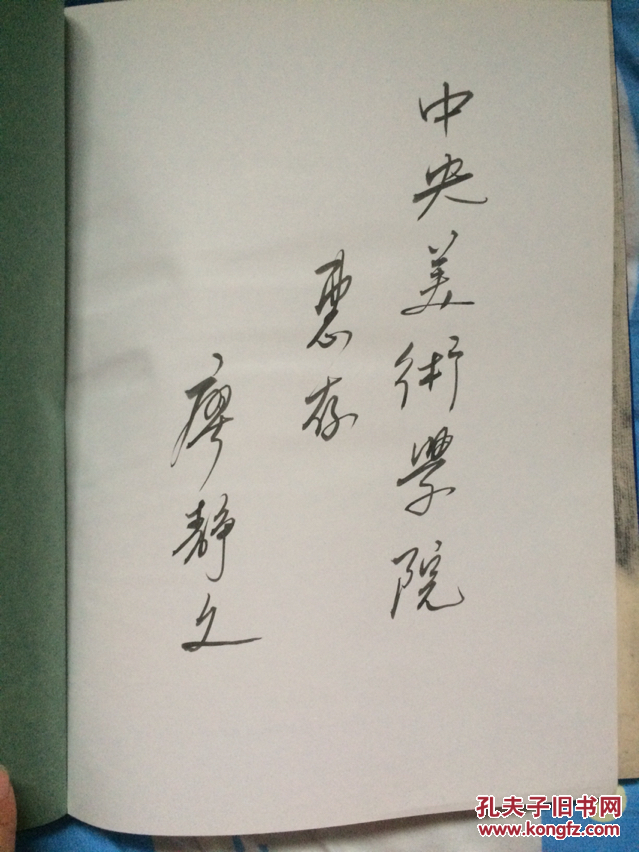 中央美術學院
惠存
廖静文
孔夫子旧书网
www.kongfz.com